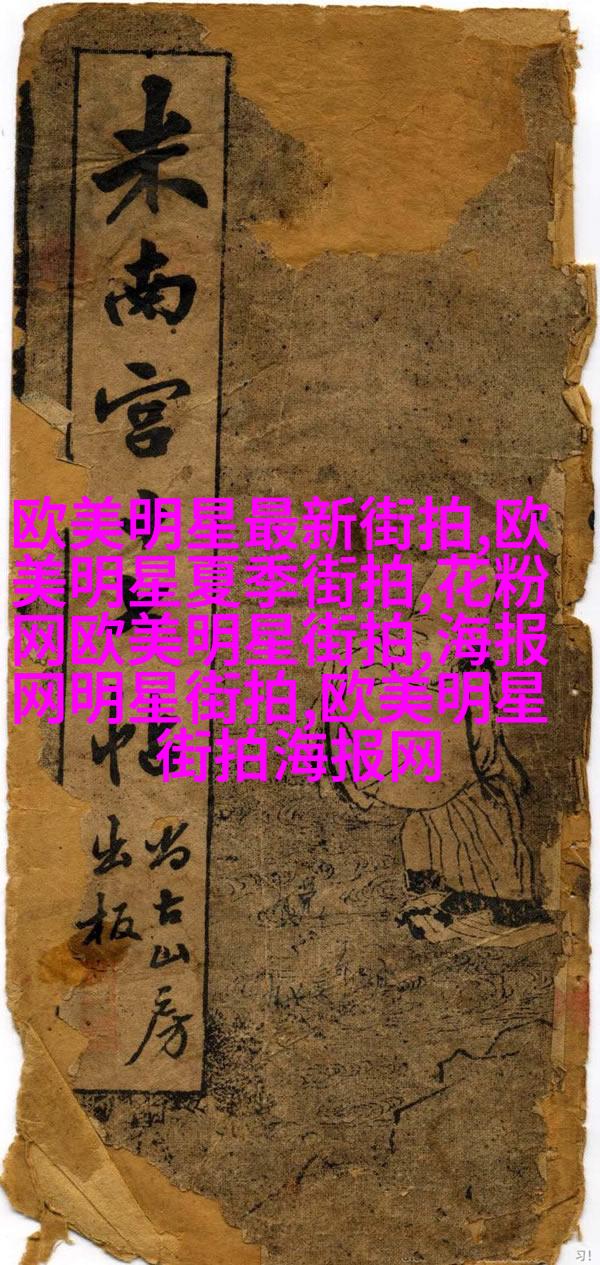 米南宫
帖
尚古山房
出板
欧美明星最新街拍,欧
美明星夏季街拍,花粉
网欧美明星街拍,海报
网明星街拍,欧美明星
街拍海报网
习!